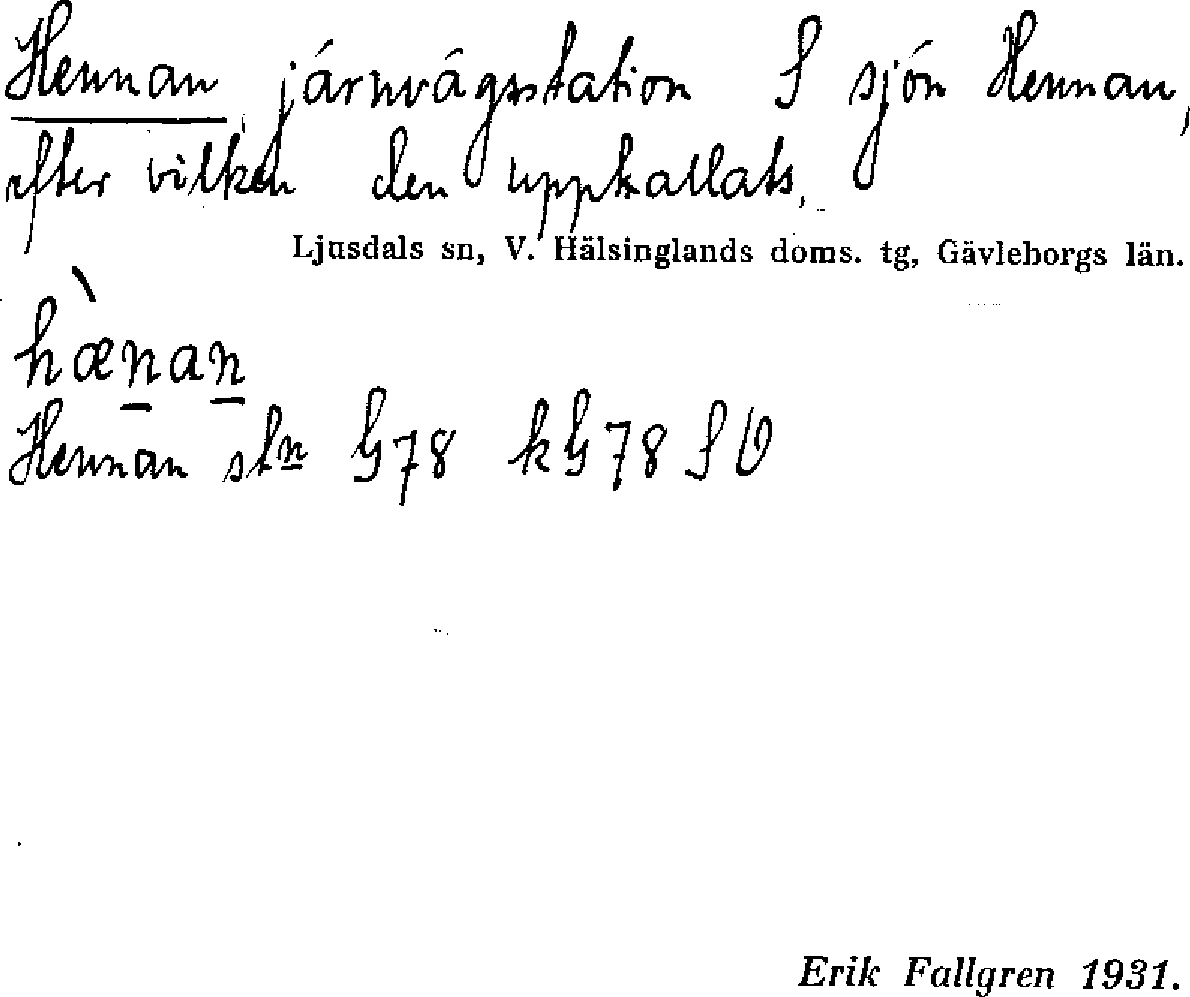 Hennan, järnvägsstation S sjön Hennan,
efter vilken den uppkallats.
Ljusdals sn, V. Hälsinglands doms. tg, Gävleborgs län.
hæ̀nan
Hennan stn G78 kG78 SV
Erik Fallgren 1931.